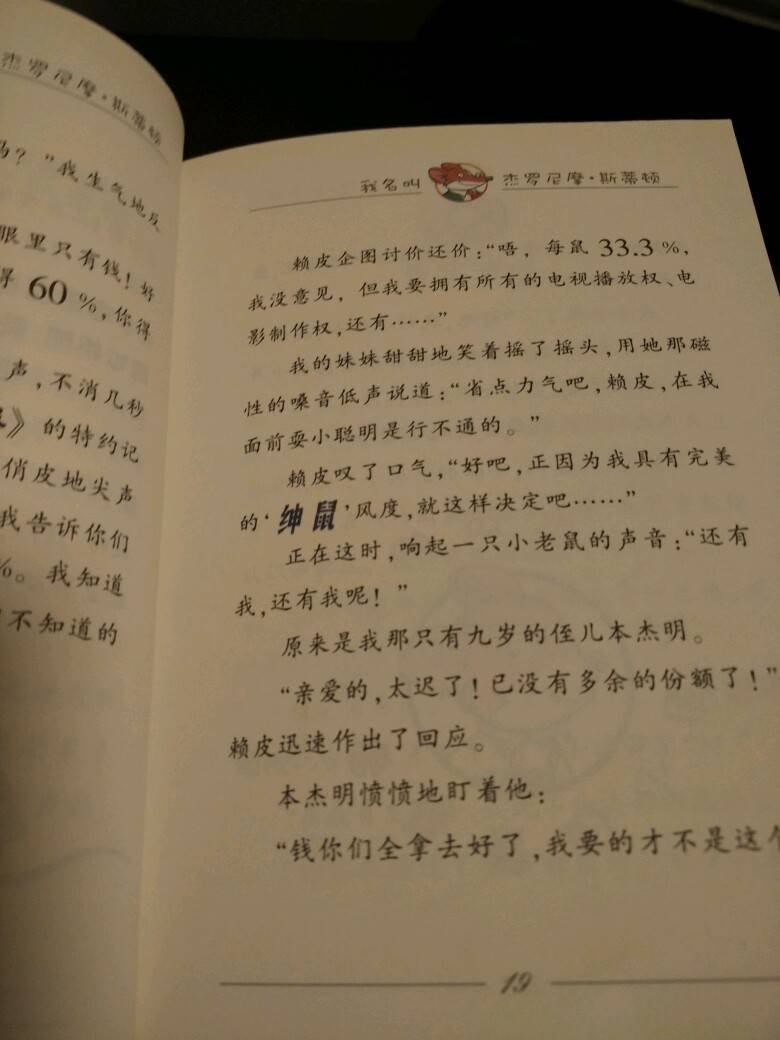 杰罗尼摩·斯蒂顿
吗？”我生气地反
眼里只有钱！好
得 60 %，你得
声，不消几秒
》的特约记
俏皮地尖声
我告诉你们
%。我知道
不知道的
我名叫 杰罗尼摩·斯蒂顿
赖皮企图讨价还价：“唔，每鼠 33.3 %，
我没意见，但我要拥有所有的电视播放权、电
影制作权，还有……”
我的妹妹甜甜地笑着摇了摇头，用她那磁
性的嗓音低声说道：“省点力气吧，赖皮，在我
面前耍小聪明是行不通的。”
赖皮叹了口气，“好吧，正因为我具有完美
的‘绅鼠’风度，就这样决定吧……”
正在这时，响起一只小老鼠的声音：“还有
我，还有我呢！”
原来是我那只有九岁的侄儿本杰明。
“亲爱的，太迟了！已没有多余的份额了！”
赖皮迅速作出了回应。
本杰明愤愤地盯着他：
“钱你们全拿去好了，我要的才不是这个
19